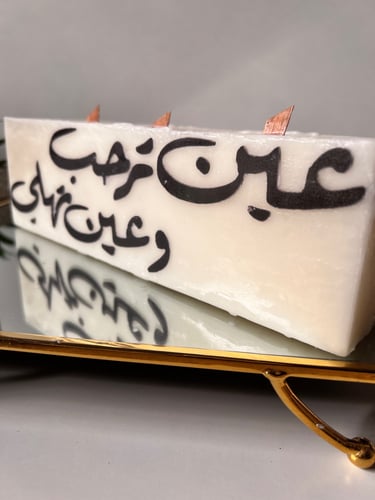 عين ترحب
وعين تهلي